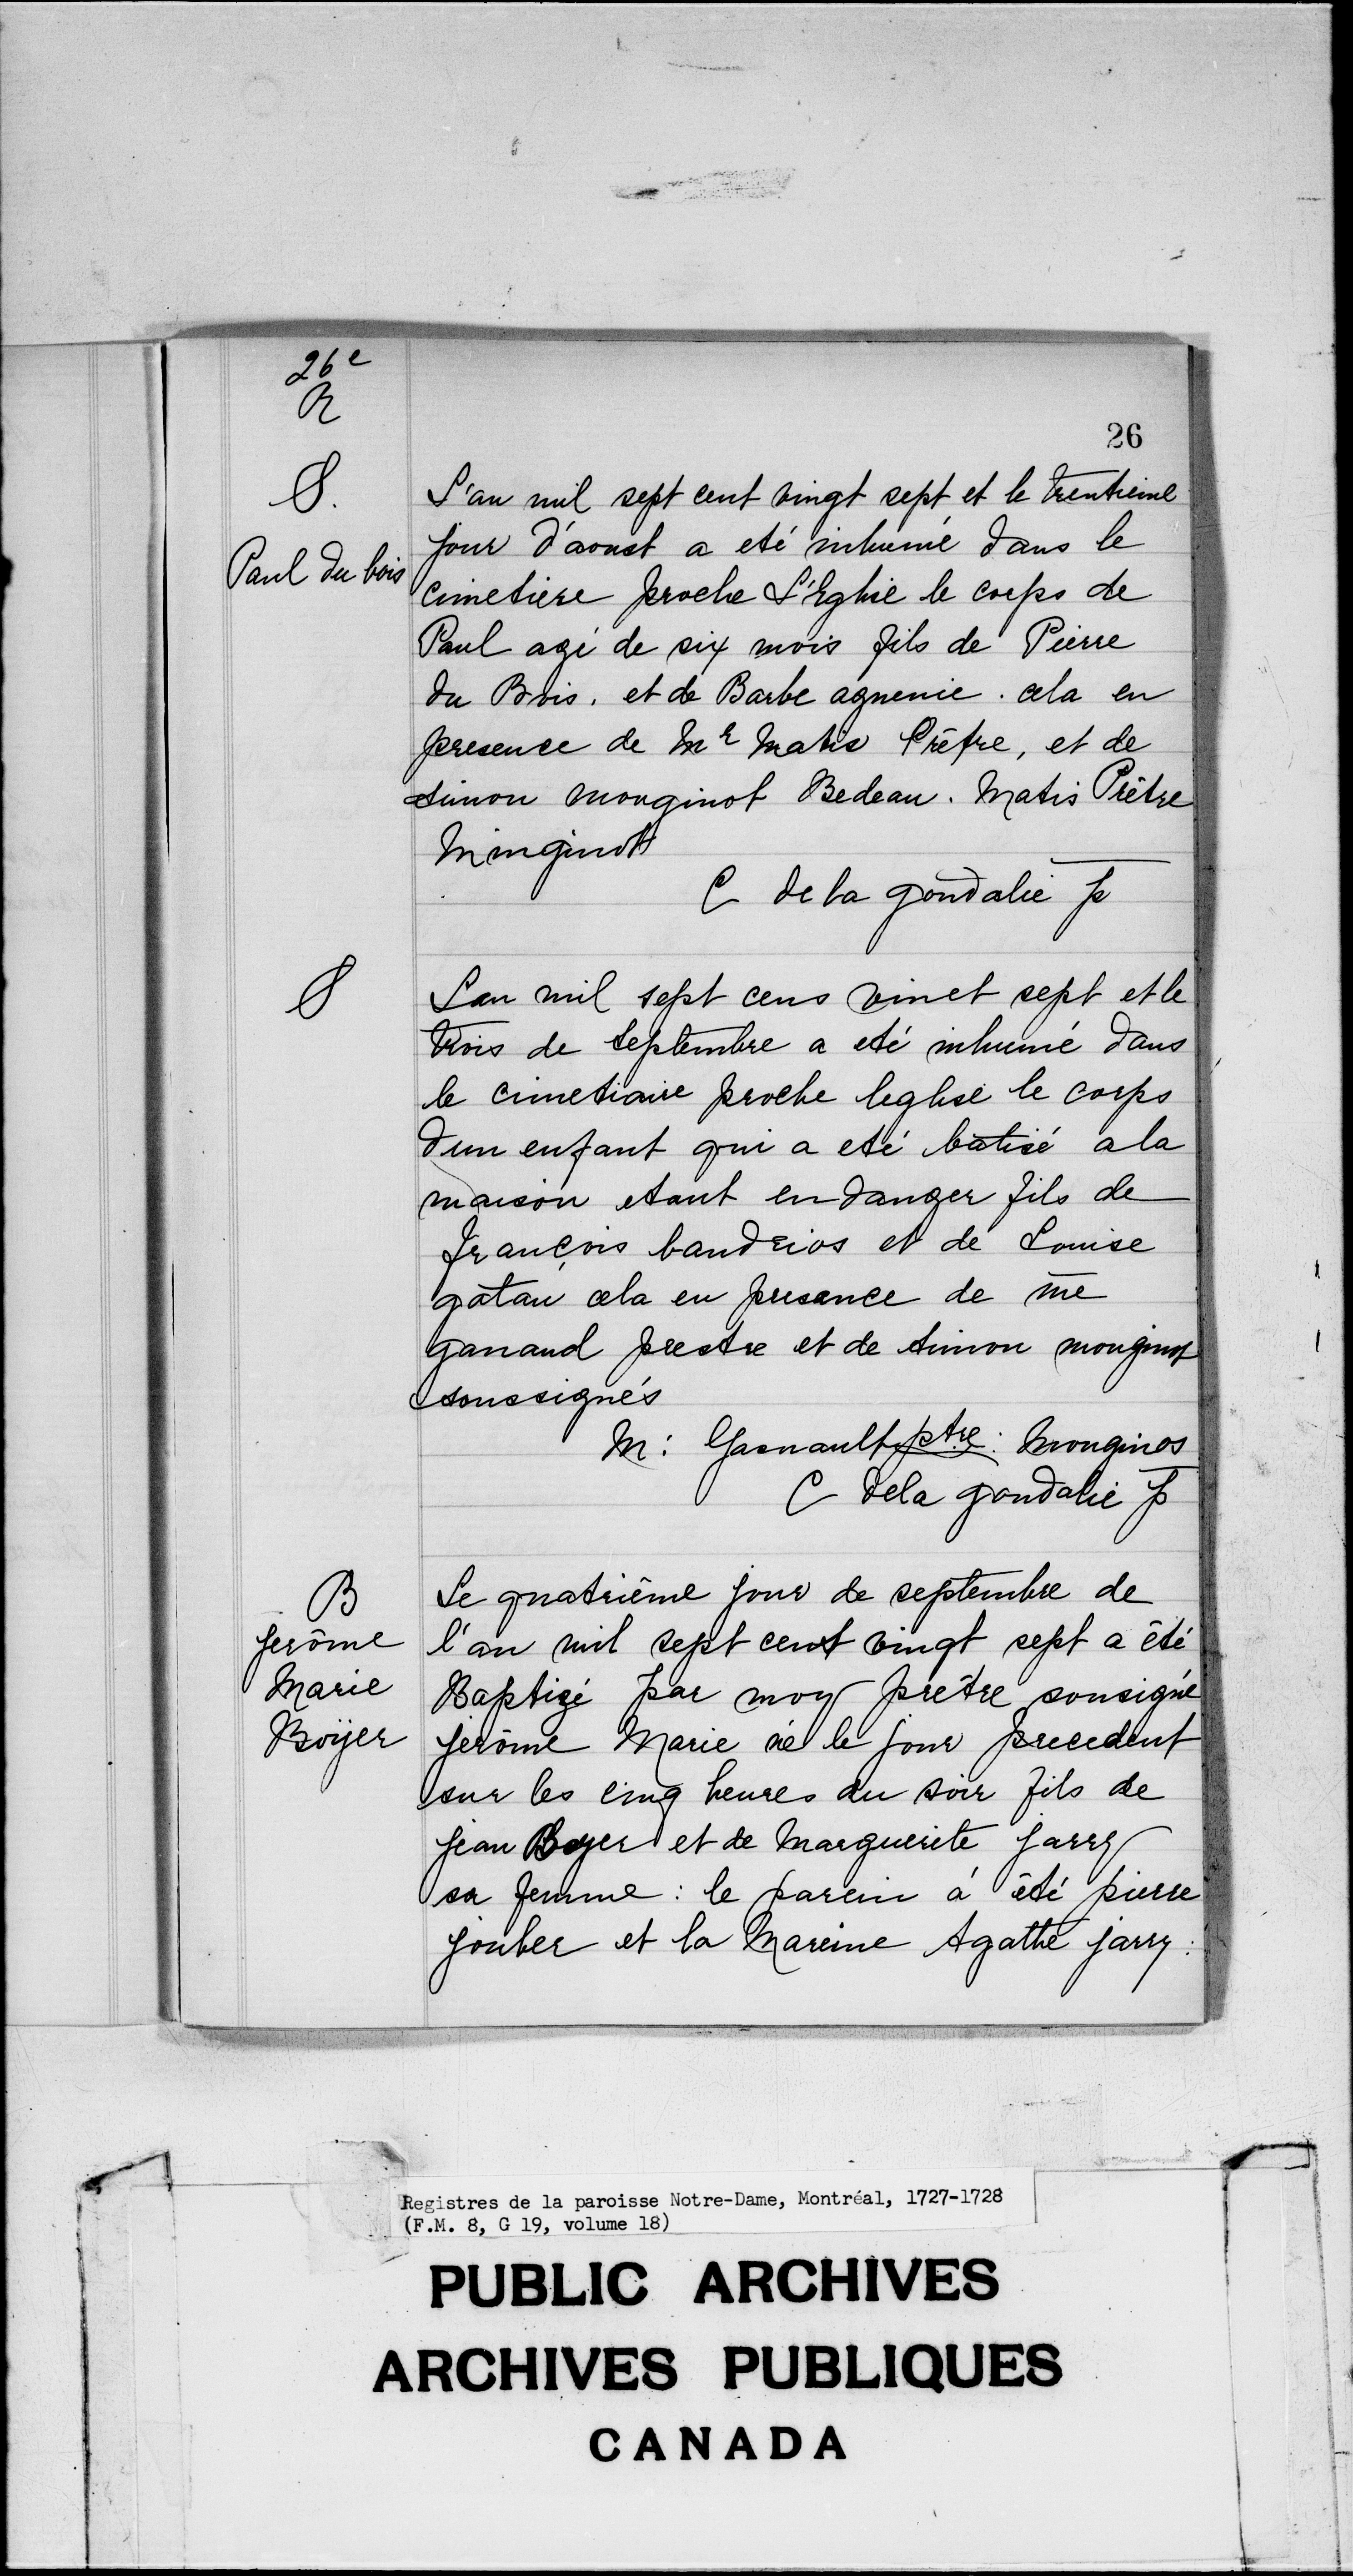 26e
R
26
S.
Paul du bois
L'an mil sept cent vingt sept et le trentieme
jour d'aoust a eté inhumé dans le
cimetiere proche L'Eglise le corps de
Paul agé de six mois fils de Pierre
du Bois. et de Barbe agnenie. cela en
presence de Mr Matis Prêtre, et de
simon monginot Bedeau. Matis Prêtre
Minginott
C de la gondalie p
S
Lan mil sept cens vinet sept et le
trois de septembre a eté inhumé dans
le cimetiaire proche leglise le corps
d'un enfant qui a eté batisé a la
maison etant en danger fils de
françois baudrios et de Louise
gatau cela en presance de me
ganaud prestre et de simon monginot
soussignés
M: Gasnault ptre: Monginos
C dela gondalie p
B
jerôme
Marie
Boÿer
Le quatriême jour de septembre de
l'an mil sept cent vingt sept a êté
Baptizé par moy prêtre sousigné
jerôme Marie né le jour precedent
sur les cinq heures du soir fils de
jean Boyer et de Marguerite jarry
sa femme: le parein á êté pierre
jouber et la Mareine Agathe jarry:
Registres de la paroisse Notre-Dame, Montréal, 1727-1728
(F.M. 8, G 19, volume 18)
PUBLIC ARCHIVES
ARCHIVES PUBLIQUES
CANADA